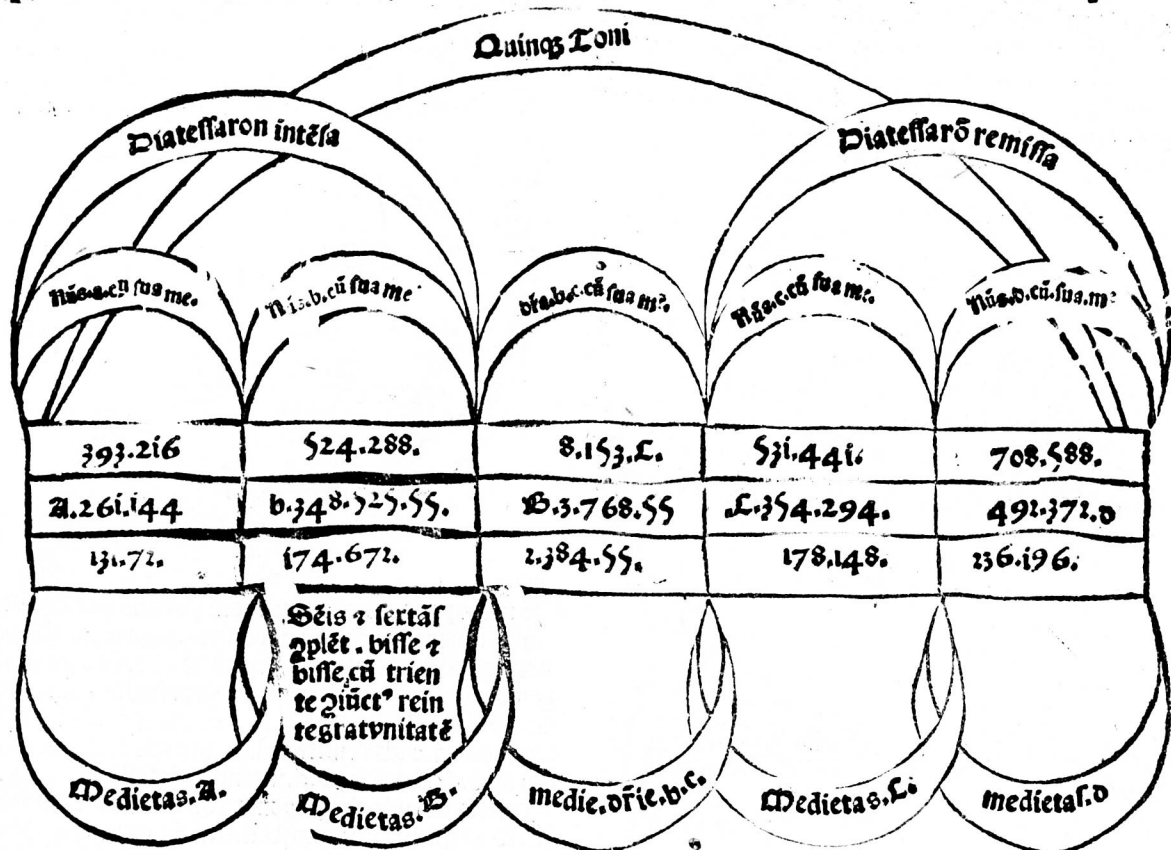 Quinqꝫ Toni
Diatessaron intẽsa
Diatessarõ remissa
Nũs.a.cũ sua me.
Nũs.b.cũ sua me
dr̃a.b.c.cũ sua mᵉ.
Nũs.c.cũ sua mᵉ.
Nũs.d.cũ.sua.mᵉ
393.2i6
524.288.
8.i53.C.
53i.44i.
708.588.
A.26i.i44
b.348.525.55.
B.3.768.55
.C.354.294.
492.372.d
i3i.72.
i74.672.
2.384.55.
i78.i48.
236.i96.
Sẽis ⁊ sextãs
ꝯplẽt.bisse ⁊
bisse,cũ trien
te ꝯiũctꝰ rein
tegratvnitatẽ
Medietas.A.
Medietas.B.
medie.dr̃ie.b.c.
Medietas.C.
medietas.d